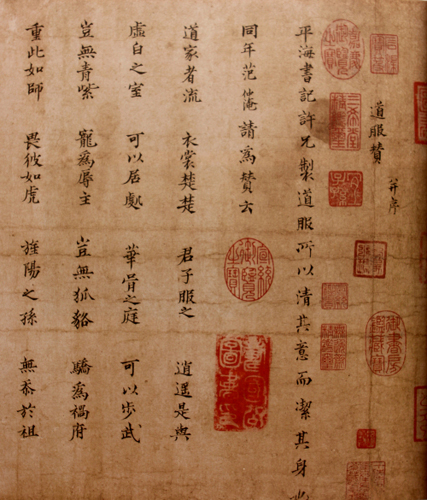 道服贊 并序
平海書記許兄製道服所以清其意而潔其身也
同年范仲淹請為贊云
道家者流 衣裳楚楚 君子服之 逍遥是與
虛白之室 可以居處 華胥之庭 可以步武
豈無青紫 寵為辱主 豈無狐貉 驕為禍府
重此如師 畏彼如虎 旌陽之孫 無忝於祖
嘉慶御覽之寶
三希堂精鑑璽
宜子孫
宣統御覽之寶